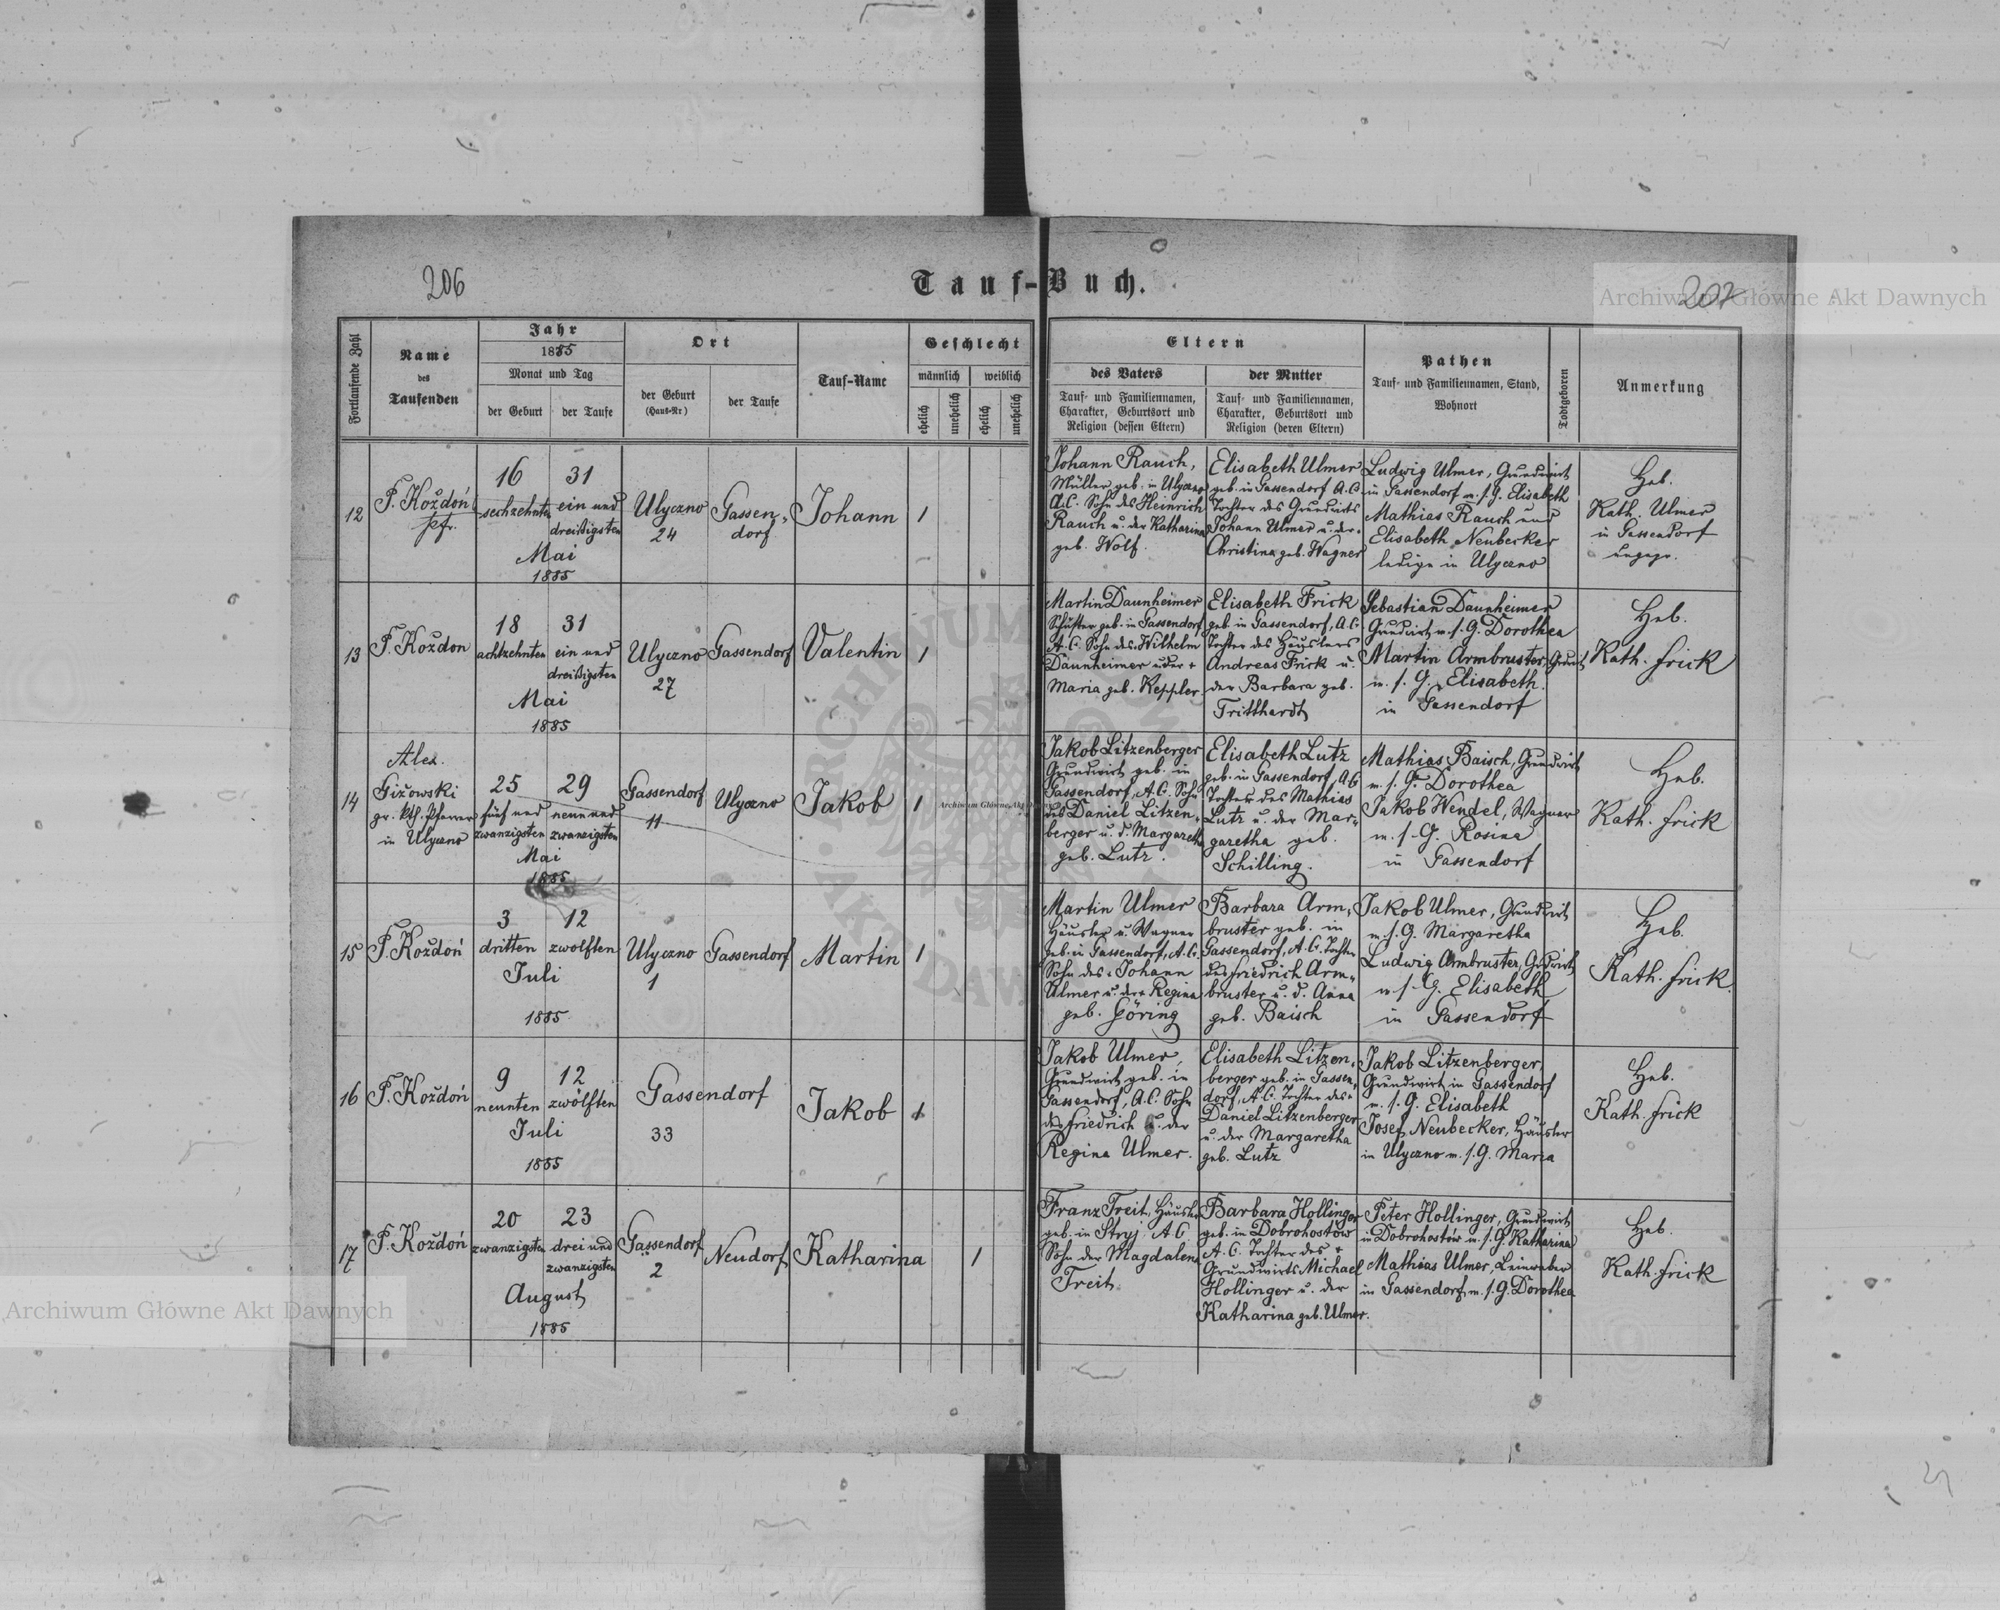 206
Tauf-Buch.
207
Archiwum Główne Akt Dawnych
Fortlaufende Zahl
Name
des
Taufenden
Jahr
1885
Monat und Tag
der Geburt
der Taufe
Ort
der Geburt
(Haus-Nr)
der Taufe
Tauf-Name
Geschlecht
männlich
weiblich
ehelich
unehelich
ehelich
unehelich
Eltern
des Vaters
Tauf- und Familiennamen,
Charakter, Geburtsort und
Religion (dessen Eltern)
der Mutter
Tauf- und Familiennamen,
Charakter, Geburtsort und
Religion (deren Eltern)
Pathen
Tauf- und Familiennamen, Stand,
Wohnort
Todtgeboren
Anmerkung
12
F. Koždoń
Pfr.
16
sechzehnten
31
ein und
dreißigsten
Mai
1885
Ulyczno
24
Gassen-
dorf
Johann
1
Johann Rauch,
Müller geb. in Ulyczno
A.C. Sohn des Heinrich
Rauch u. der Katharina
geb. Wolf.
Elisabeth Ulmer
geb. in Gassendorf A.C.
Tochter des Grundwirts
Johann Ulmer u. der
Christina geb. Wagner
Ludwig Ulmer, Grundwirt
in Gassendorf m. s. G. Elisabeth
Mathias Rauch und
Elisabeth Neubecker
ledige in Ulyczno
Heb.
Kath. Ulmer
in Gassendorf
ungepr.
13
F. Koždon
18
achtzehnten
31
ein und
dreißigsten
Mai
1885
Ulyczno
27
Gassendorf
Valentin
1
Martin Daunheimer
Schuster geb. in Gassendorf
A.C. Sohn des Wilhelm
Daunheimer u. der +
Maria geb. Keppler
Elisabeth Frick
geb. in Gassendorf, A.C.
Tochter des Häuslers
Andreas Frick u.
der Barbara geb.
Tritthardt
Sebastian Daunheimer
Grundwirt m. s. G. Dorothea
Martin Armbruster, Grundt
m. s. G. Elisabeth
in Gassendorf
Heb.
Kath. Frick
14
Alex.
Gižowski
gr. kth. Pfarrer
in Ulyczno
25
fünf und
zwanzigsten
29
neun und
zwanzigsten
Mai
1885
Gassendorf
11
Ulyczno
Jakob
1
Jakob Litzenberger
Grundwirt geb. in
Gassendorf, A.C. Sohn
des Daniel Litzen-
berger u. d. Margareth
geb. Lutz.
Elisabeth Lutz
geb. in Gassendorf, A.C.
Tochter des Mathias
Lutz u. der Mar-
garetha geb.
Schilling.
Mathias Baisch, Grundwirt
m. s. G. Dorothea
Jakob Wendel, Wagner
m. s. G. Rosina
in Gassendorf
Heb.
Kath. Frick
Archiwum Główne Akt Dawnych
15
F. Koždoń
3
dritten
12
zwölften
Juli
1885
Ulyczno
1
Gassendorf
Martin
1
Martin Ulmer
Häusler u. Wagner
geb. in Gassendorf, A.C.
Sohn des + Johann
Ulmer u. der + Regina
geb. Göring
Barbara Arm-
bruster geb. in
Gassendorf, A.C. Tochter
des Friedrich Arm-
bruster u. d. Anna
geb. Baisch
Jakob Ulmer, Grundwirt
m. s. G. Margaretha
Ludwig Armbruster, Grdwirt
m. s. G. Elisabeth
in Gassendorf
Heb.
Kath. Frick.
16
F. Koždoń
9
neunten
12
zwölften
Juli
1885
Gassendorf
33
Jakob
1
Jakob Ulmer,
Grundwirt geb. in
Gassendorf, A.C. Sohn
des Friedrich u. der
Regina Ulmer.
Elisabeth Litzen-
berger geb. in Gassen-
dorf, A.C. Tochter des +
Daniel Litzenberger
u. der Margaretha
geb. Lutz
Jakob Litzenberger,
Grundwirt in Gassendorf
m. s. G. Elisabeth
Josef Neubecker, Häusler
in Ulyczno m. s. G. Maria
Heb.
Kath. Frick
17
F. Koždoń
20
zwanzigsten
23
drei und
zwanzigsten
August
1885
Gassendorf
2
Neudorf
Katharina
1
Franz Treit, Häusler
geb. in Stryj, A.C.
Sohn der Magdalena
Treit
Barbara Hollinger
geb. in Dobrohostów
A.C. Tochter des +
Grundwirts Michael
Hollinger u. der
Katharina geb. Ulmer.
Peter Hollinger, Grundwirt
in Dobrohostów m. s. G. Katharina
Mathias Ulmer, Leinweber
in Gassendorf m. s. G. Dorothea
Heb
Kath. Frick
Archiwum Główne Akt Dawnych